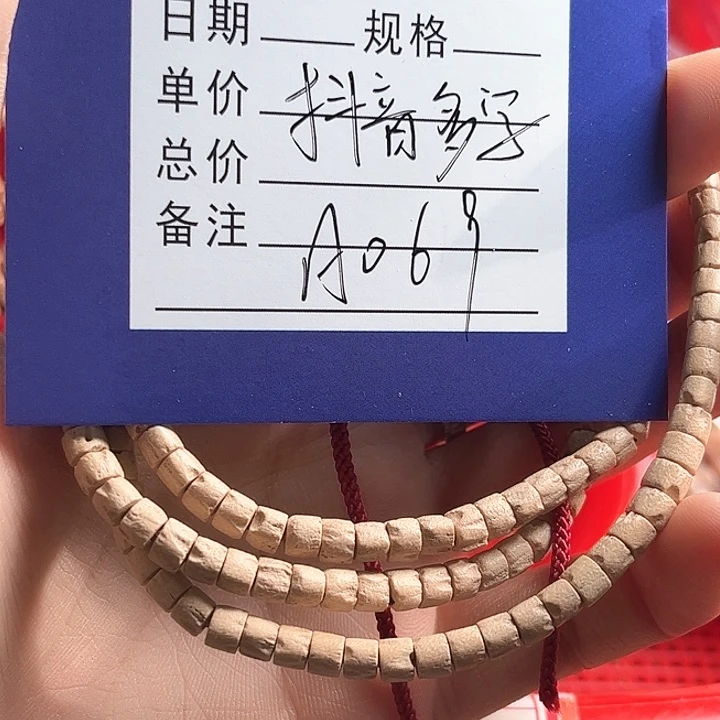 日期 规格
单价 抖音
总价
备注 A069